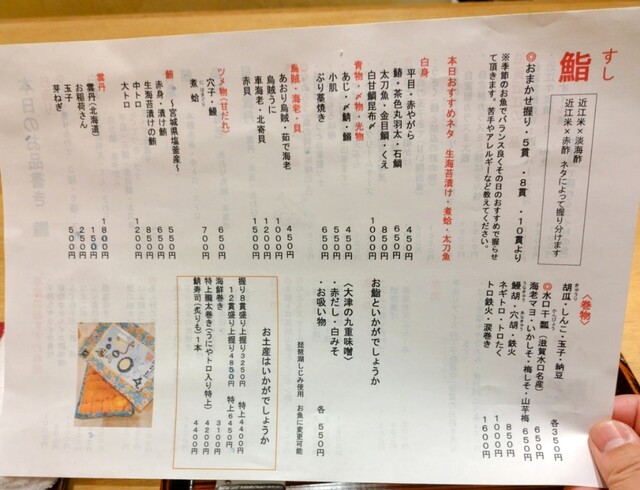 すし
鮨
近江米×淡海酢
近江米×赤酢 ネタによって握り分けます
◎おまかせ握り・5貫 ・8貫 ・10貫より
※季節のお魚でバランス良くその日のおすすめで握らせ
て頂きます。苦手やアレルギーなど教えてください。
本日おすすめネタ 生海苔漬け・煮蛤・太刀魚
白身
平目・赤やがら 450円
鰆・茶色丸羽太・石鯛 650円
太刀魚・金目鯛・くえ 850円
白甘鯛昆布〆 1000円
青物・〆物・光物
あじ・〆鯖・鰯 450円
小肌 550円
ぶり藁焼き 650円
烏賊・海老・貝
あおり烏賊・茹で海老 450円
烏賊うに 1000円
車海老・北寄貝 1200円
赤貝 1500円
ツメ物(甘だれ)
穴子・鰻 650円
煮蛤 700円
鮪 ～宮城県塩釜産～
赤身・漬け鮪 550円
生海苔漬けの鮪 650円
中トロ 800円
大トロ 1200円
雲丹
雲丹(北海道) 1800円
お稲荷さん 100円
玉子 250円
芽ねぎ 500円
〈巻物〉
胡瓜・しんこ・玉子・納豆 各350円
◎水口干瓢(滋賀水口名産) 650円
海老マヨ・いかしそ・梅しそ・山芋梅 650円
鰻胡・穴胡・鉄火 850円
ネギトロ・トロたく 1000円
トロ鉄火・涙巻き 1600円
お鮨といかがでしょうか
〈大津の九重味噌〉
・赤だし・白みそ
・お吸い物 各550円
琵琶湖しじみ使用 お魚に変更可能
お土産はいかがでしょうか
握り8貫盛り上握り3250円 特上4400円
12貫盛り上握り4850円 特上6450円
海鮮巻き 3100円
特上朧太巻き(うにやトロ入り特上) 4200円
鯖寿司(炙りも)1本 4400円